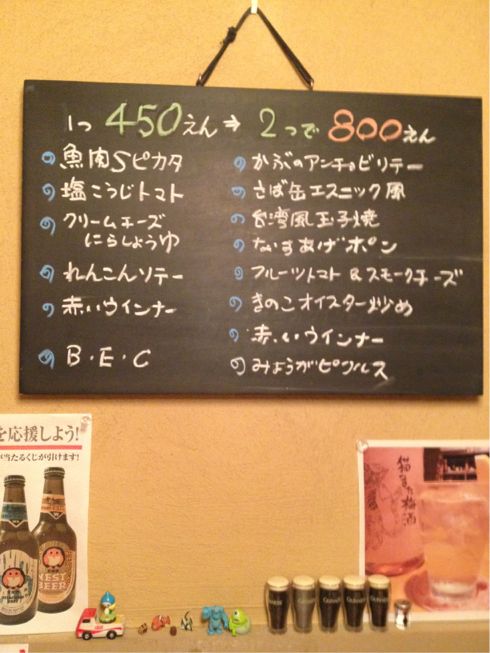 1つ 450えん→ 2つで 800えん
魚肉Sピカタ
塩こうじトマト
クリームチーズ
にらしょうゆ
れんこんソテー
赤いウインナー
B・E・C
かぶのアンチョビソテー
さば缶エスニック風
台湾風玉子焼
なすあげポン
フルーツトマト&スモークチーズ
きのこオイスター炒め
赤いウインナー
みょうがピクルス
を応援しよう!
が当たるくじが引けます!
NEST
BEER
梅酒
GUINNESS